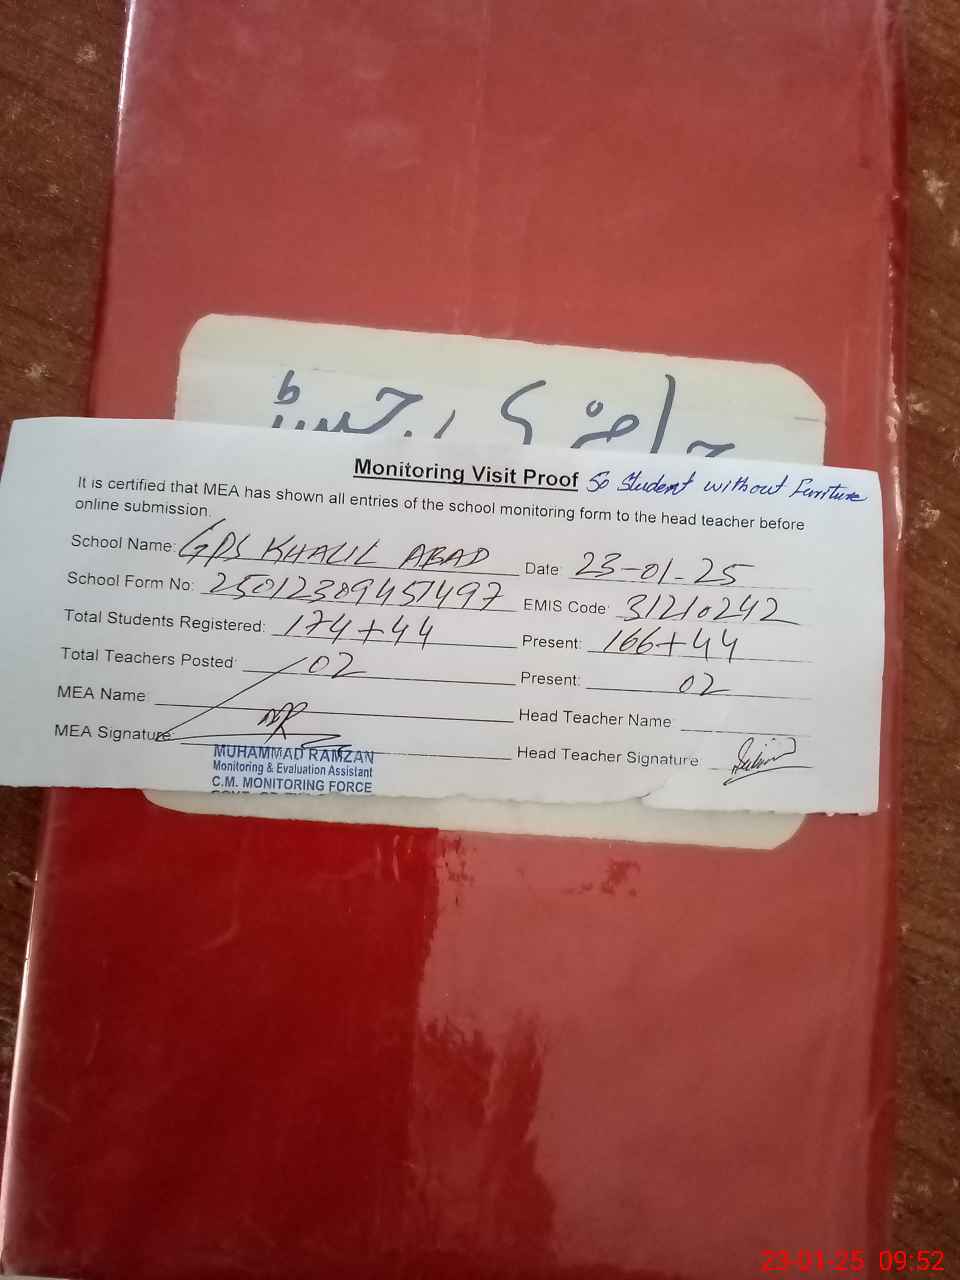 حاضری رجسٹر
Monitoring Visit Proof 50 Student without Furniture
It is certified that MEA has shown all entries of the school monitoring form to the head teacher before
online submission.
School Name: GPS KHALIL ABAD Date: 23-01-25
School Form No: 250123094514​97 EMIS Code: 31210242
Total Students Registered: 174+44 Present: 166+44
Total Teachers Posted: 02 Present: 02
MEA Name: Head Teacher Name:
MEA Signature: Head Teacher Signature:
MUHAMMAD RAMZAN
Monitoring & Evaluation Assistant
C.M. MONITORING FORCE
23-01-25 09:52